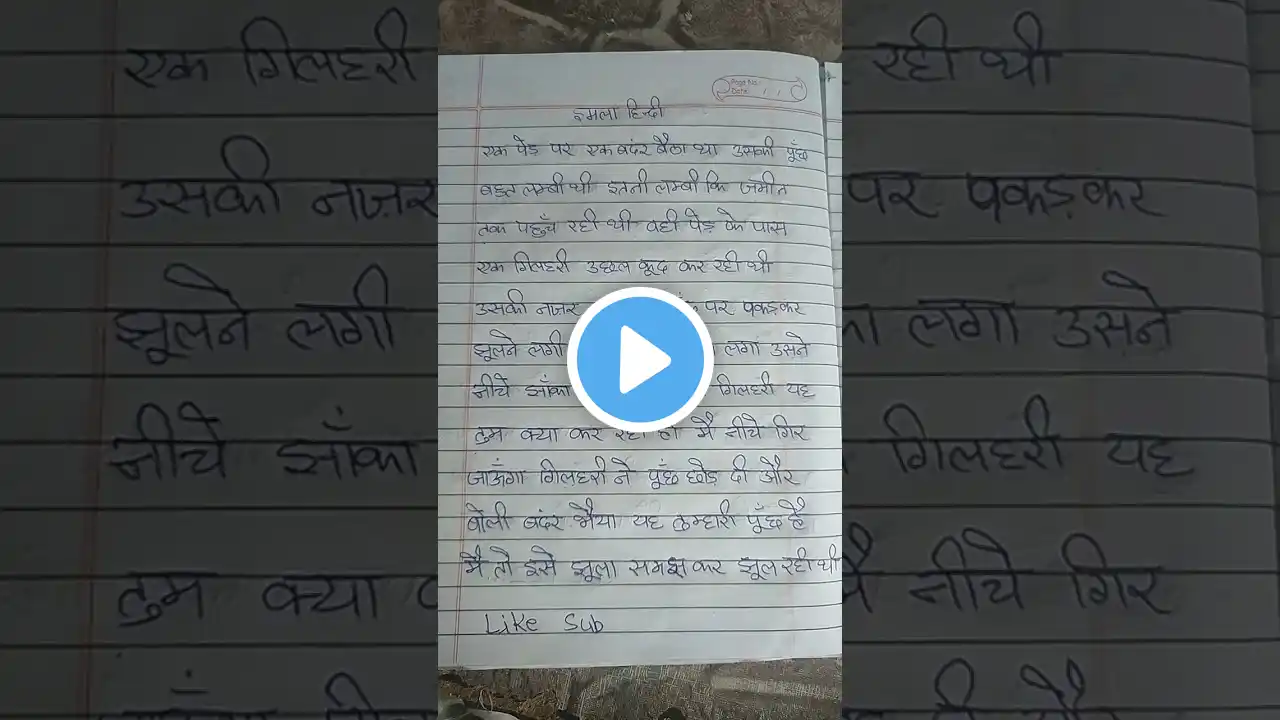 Page No.
Date
इमला हिन्दी
एक पेड़ पर एक बदंर बैठा था उसकी पूँछ
बहुत लम्बी थी इतनी लम्बी कि जमीन
तक पहुँच रही थी वही पेड़ के पास
एक गिलहरी उछल कूद कर रही थी
उसकी नजर पर पकड़कर
झूलने लगी लगा उसने
नीचे झाँका गिलहरी यह
तुम क्या कर रहे हो मै नीचे गिर
जाऊँगा गिलहरी ने पूँछ छोड़ दी और
बोली बदंर भैया यह तुम्हारी पूँछ है
मै तो इसे झूला समझ कर झूल रही थी
Like Sub